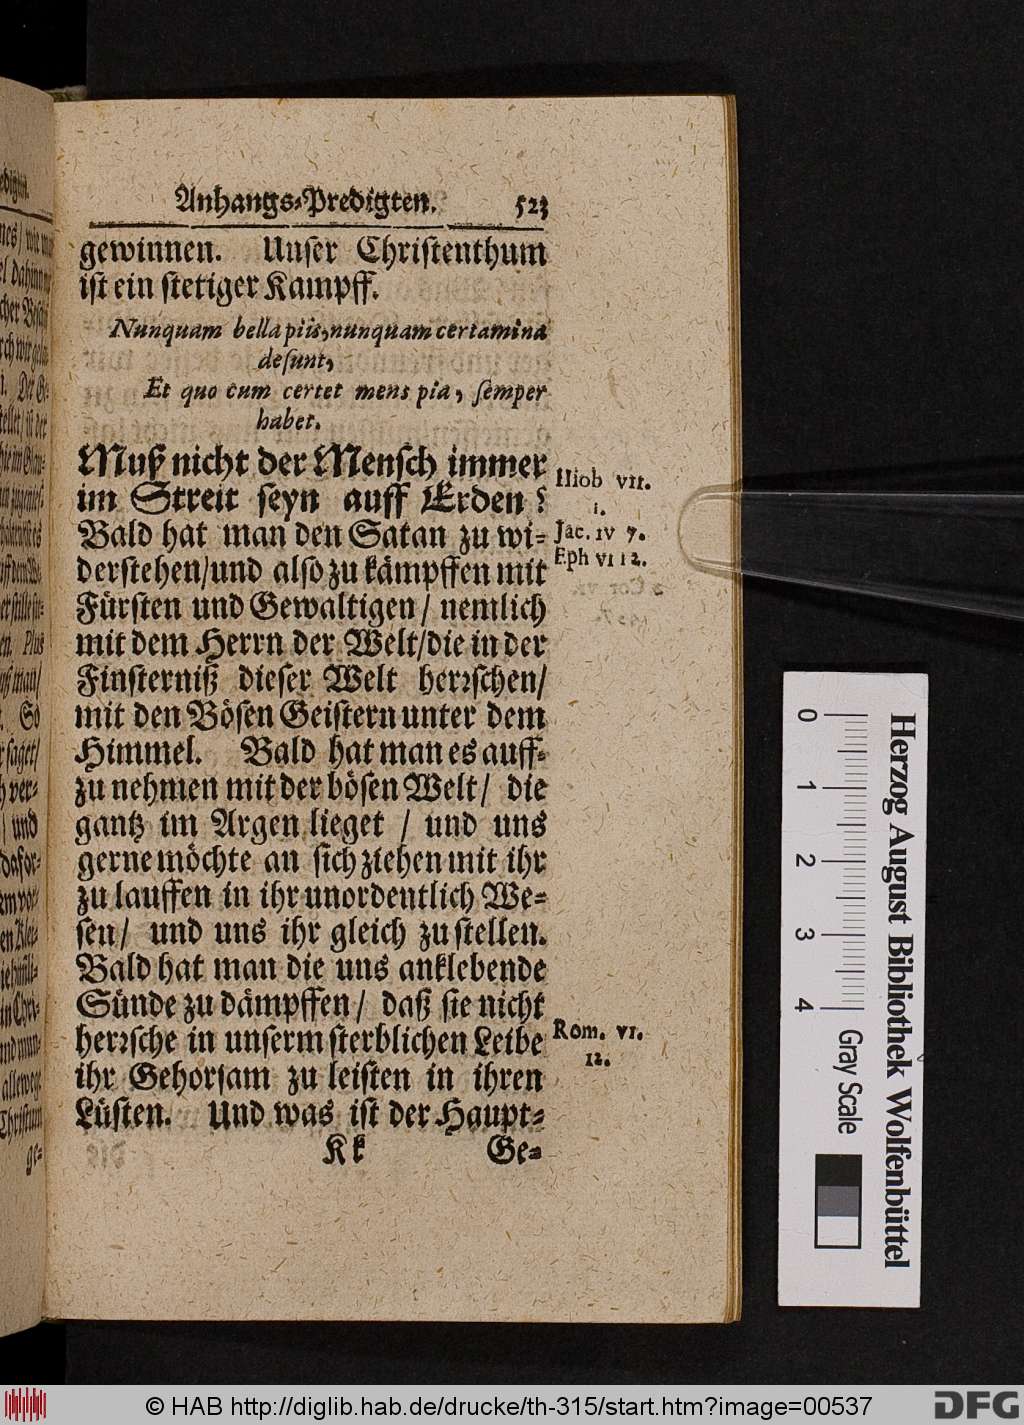 Anhangs-Predigten. 523
gewinnen. Unser Christenthum
ist ein stetiger Kampff.
Nunquam bella piis, nunquam certamina
desunt,
Et quo cum certet mens pia, semper
habet.
Muß nicht der Mensch immer
im Streit seyn auff Erden?
Hiob VII.
1.
Bald hat man den Satan zu wi-
Jac. IV 7.
derstehen/und also zu kämpffen mit
Eph VI 12.
Fürsten und Gewaltigen/ nemlich
mit dem Herrn der Welt/die in der
Finsterniß dieser Welt herrschen/
mit den Bösen Geistern unter dem
Himmel. Bald hat man es auff-
zu nehmen mit der bösen Welt/ die
gantz im Argen lieget / und uns
gerne möchte an sich ziehen mit ihr
zu lauffen in ihr unordentlich We-
sen/ und uns ihr gleich zu stellen.
Bald hat man die uns anklebende
Sünde zu dämpffen/ daß sie nicht
herrsche in unserm sterblichen Leibe
Rom. VI.
12.
ihr Gehorsam zu leisten in ihren
Lüsten. Und was ist der Haupt-
Kk Ge-
Herzog August Bibliothek Wolfenbüttel
0 1 2 3 4 Gray Scale
© HAB http://diglib.hab.de/drucke/th-315/start.htm?image=00537
DFG